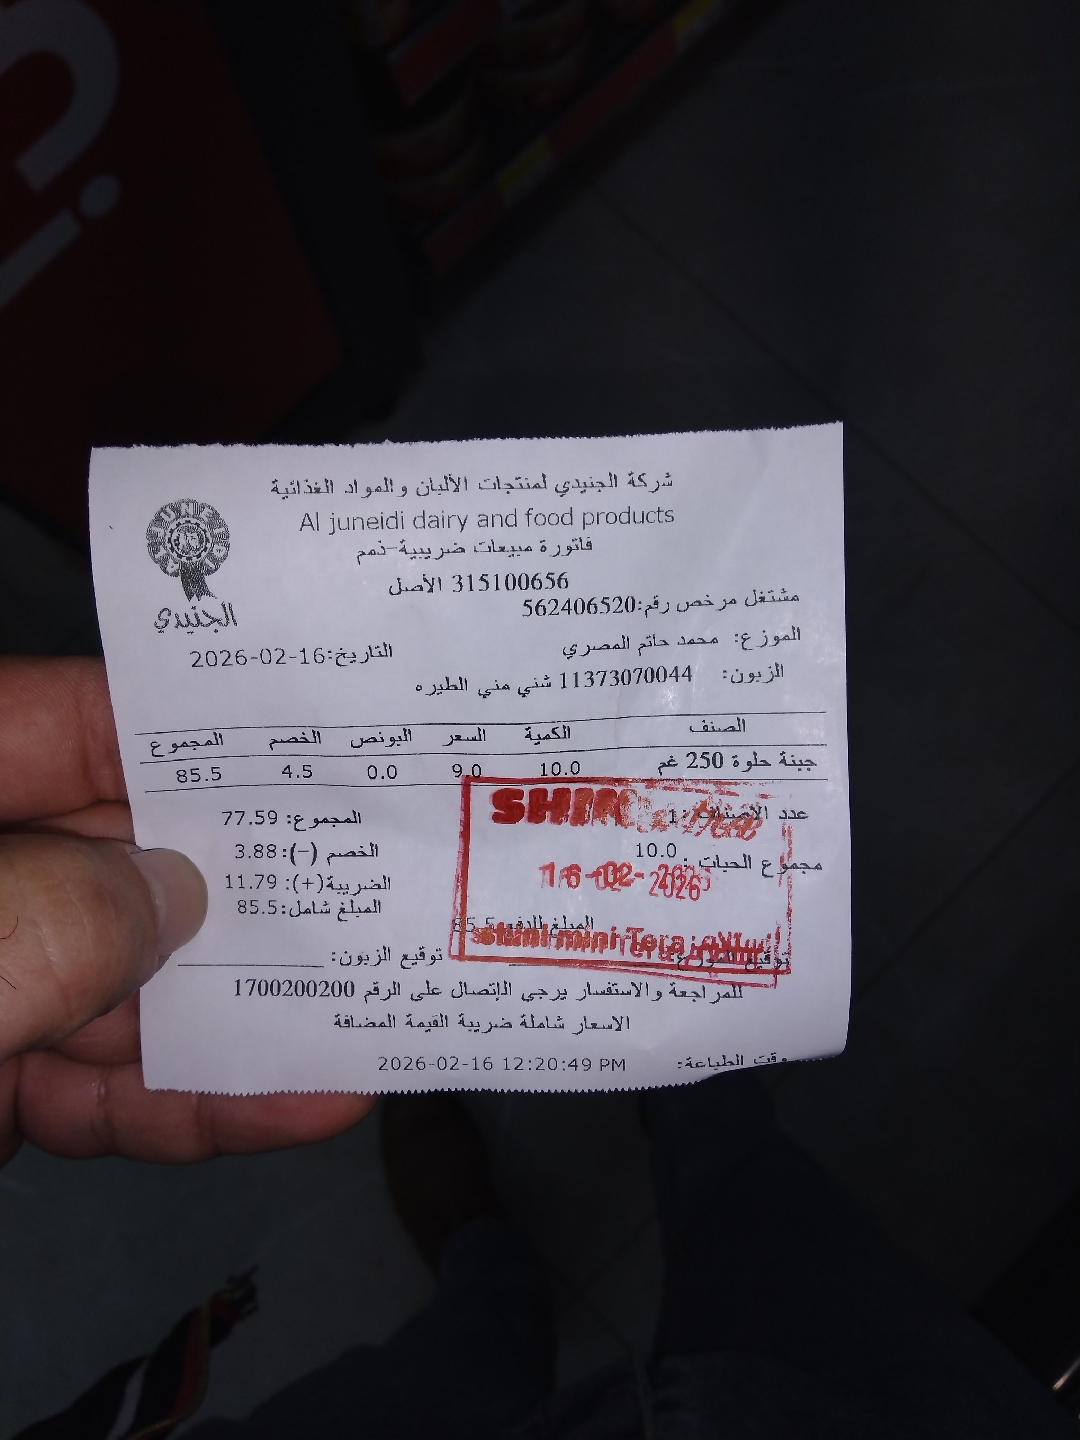 شركة الجنيدي لمنتجات الألبان والمواد الغذائية
Al juneidi dairy and food products
فاتورة مبيعات ضريبية-ذمم
315100656 الأصل
مشتغل مرخص رقم:562406520
الجنيدي
الموزع: محمد حاتم المصري
التاريخ:2026-02-16
الزبون: 11373070044 شني مني الطيره
الصنف الكمية السعر البونص الخصم المجموع
جبنة حلوة 250 غم 10.0 9.0 0.0 4.5 85.5
عدد الاصناف :1
المجموع: 77.59
مجموع الحبات : 10.0
الخصم (-): 3.88
16-02-2026
الضريبة(+): 11.79
المبلغ شامل:85.5
المبلغ للدفع 85.5
shini mini Tera
توقيع الموزع:
توقيع الزبون:
للمراجعة والاستفسار يرجي الإتصال على الرقم 1700200200
الاسعار شاملة ضريبة القيمة المضافة
وقت الطباعة: 2026-02-16 12:20:49 PM